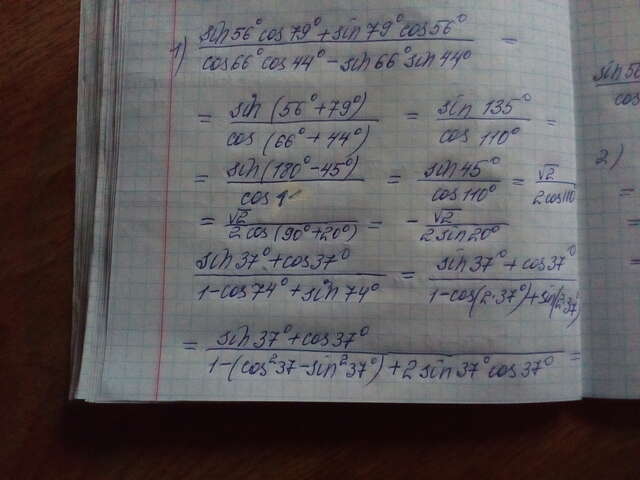 1) (sin56°cos79°+sin79°cos56°)/(cos66°cos44°-sin66°sin44°) =
= sin(56°+79°)/cos(66°+44°) = sin 135°/cos 110° =
= sin(180°-45°)/cos = sin45°/cos110° = √2/2cos110
= √2/2cos(90°+20°) = - √2/2sin20°
(sin37°+cos37°)/(1-cos74°+sin74°) = (sin37°+cos37°)/(1-cos(2·37°)+sin(2·37°))
= (sin37°+cos37°)/(1-(cos²37-sin²37°)+2sin37°cos37°) =
sin56
cos
2)
=
=
=